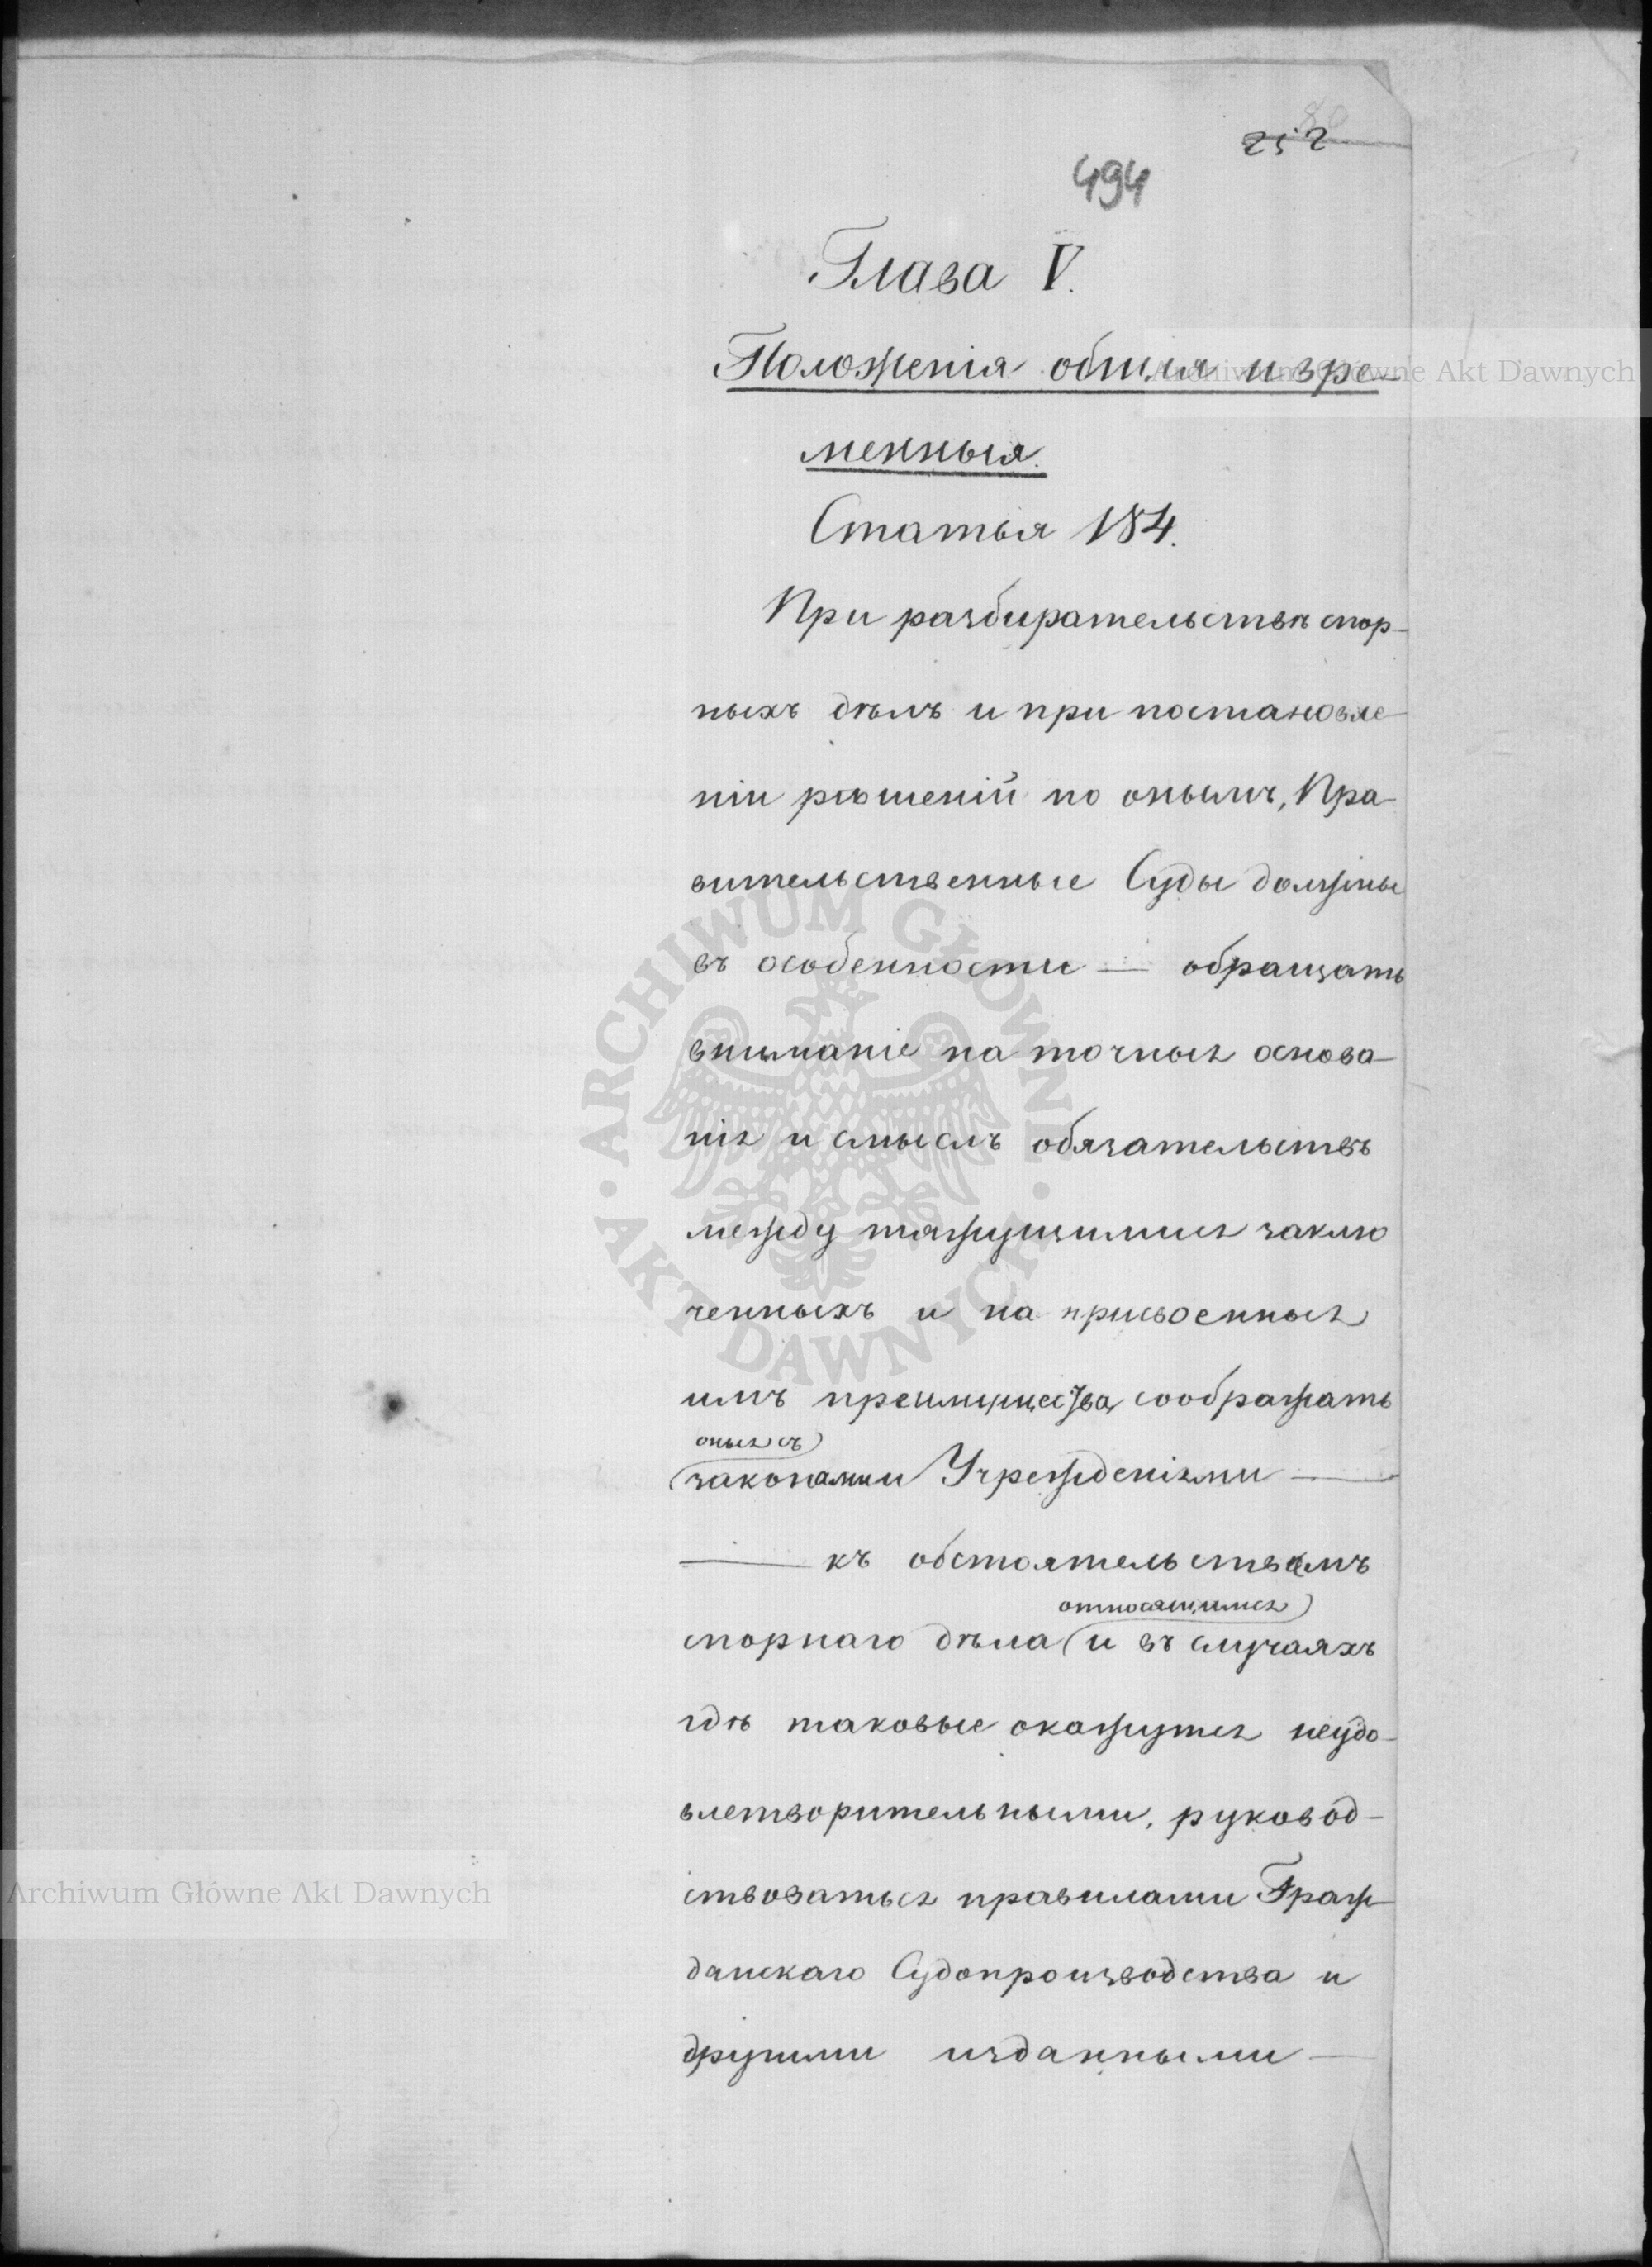 252
494
Глава V.
Положенія общія и вре-
менныя.
Статья 184.
При разбирательствѣ спор-
ныхъ дѣлъ и при постановле-
ніи рѣшеній по онымъ, Пра-
вительственные Суды должны
въ особенности — обращать
вниманіе на точныя основа-
нія и смыслъ обязательствъ
между тяжущимися заклю
ченныхъ и на присвоенныя
имъ преимущества, соображать
оныя съ
законами и Учрежденіями —
— къ обстоятельствамъ
относящимися
спорнаго дѣла и въ случаяхъ
гдѣ таковые окажутся неудо-
влетворительными, руковод-
ствоваться правилами Граж-
данскаго Судопроизводства и
другими изданными —
Archiwum Główne Akt Dawnych
ARCHIWUM GŁÓWNE · AKT DAWNYCH ·
Archiwum Główne Akt Dawnych